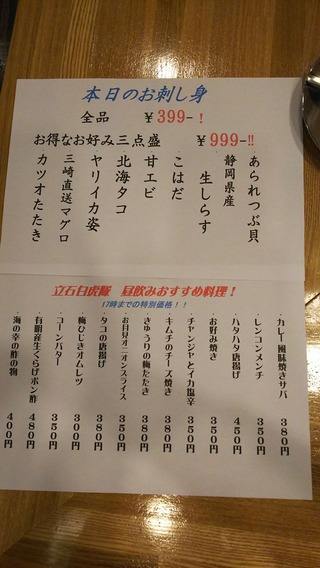 本日のお刺し身
全品 ￥399-！
お得なお好み三点盛 ￥999-!!
・あられつぶ貝
・静岡県産
生しらす
・こはだ
・甘エビ
・北海タコ
・ヤリイカ姿
・三崎直送マグロ
・カツオたたき
立石白虎隊 昼飲みおすすめ料理！
17時までの特別価格！！
・カレー風味焼きサバ 380円
・レンコンメンチ 350円
・ハタハタ唐揚げ 450円
・お好み焼き 350円
・チャンジャとイカ塩辛 350円
・キムチのチーズ焼き 380円
・きゅうりの梅たたき 350円
・お月見オニオンスライス 350円
・タコの唐揚げ 380円
・梅ひじきオムレツ 380円
・コーンバター 350円
・有明産生くらげポン酢 480円
・海の幸の酢の物 400円